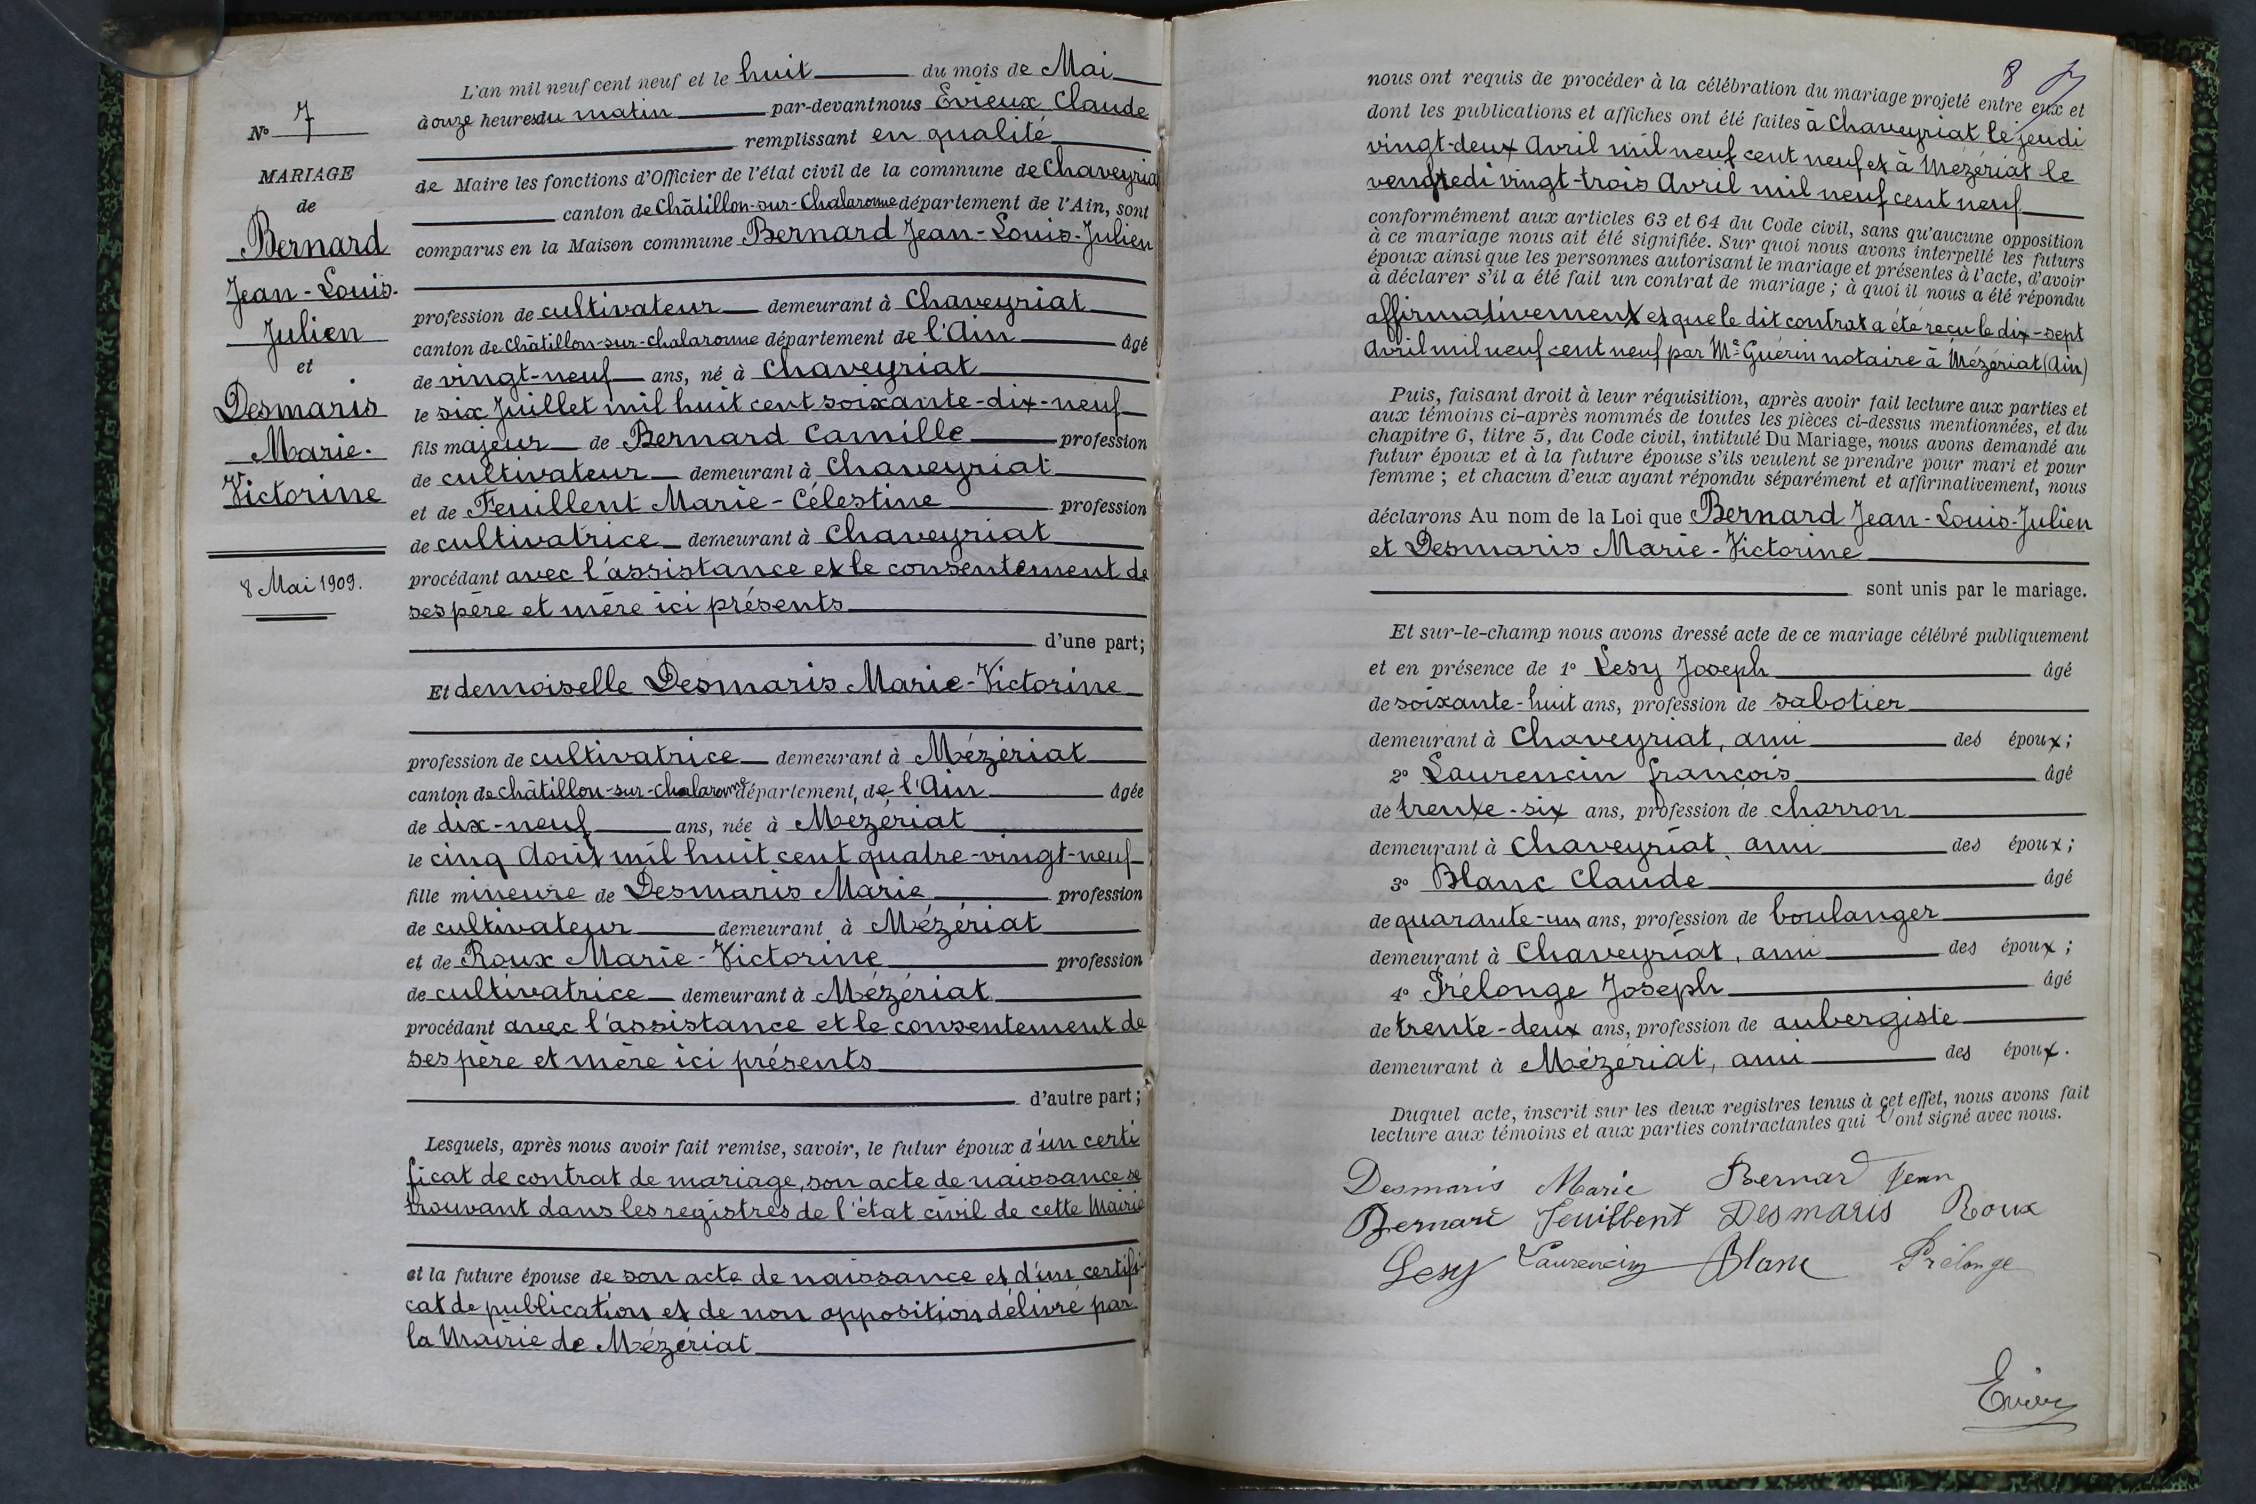 N° 7
MARIAGE
de
Bernard
Jean-Louis-
Julien
et
Desmaris
Marie-
Victorine
8 Mai 1909.
L'an mil neuf cent neuf et le huit du mois de Mai
à onze heures du matin par-devant nous Evieux Claude
remplissant en qualité
de Maire les fonctions d'Officier de l'état civil de la commune de Chaveyria
canton de Châtillon-sur-Chalaronne département de l'Ain, sont
comparus en la Maison commune Bernard Jean-Louis-Julien
profession de cultivateur demeurant à Chaveyriat
canton de Châtillon-sur-chalaronne département de l'Ain âgé
de vingt-neuf ans, né à Chaveyriat
le six Juillet mil huit cent soixante-dix-neuf
fils majeur de Bernard Camille profession
de cultivateur demeurant à Chaveyriat
et de Feuillent Marie-Célestine profession
de cultivatrice demeurant à Chaveyriat
procédant avec l'assistance et le consentement de
ses père et mère ici présents
d'une part;
Et demoiselle Desmaris Marie-Victorine
profession de cultivatrice demeurant à Mézériat
canton de châtillon-sur-chalaronne département de l'Ain âgée
de dix-neuf ans, née à Mézériat
le cinq Août mil huit cent quatre-vingt-neuf
fille mineure de Desmaris Marie profession
de cultivateur demeurant à Mézériat
et de Roux Marie-Victorine profession
de cultivatrice demeurant à Mézériat
procédant avec l'assistance et le consentement de
ses père et mère ici présents
d'autre part;
Lesquels, après nous avoir fait remise, savoir, le futur époux d'un certi
ficat de contrat de mariage, son acte de naissance se
trouvant dans les registres de l'état civil de cette Mairie
et la future épouse de son acte de naissance et d'un certifi-
cat de publication et de non opposition délivré par
la Mairie de Mézériat
8
nous ont requis de procéder à la célébration du mariage projeté entre eux et
dont les publications et affiches ont été faites à Chaveyriat le jeudi
vingt-deux Avril mil neuf cent neuf et à Mézériat le
vendredi vingt-trois Avril mil neuf cent neuf
conformément aux articles 63 et 64 du Code civil, sans qu'aucune opposition
à ce mariage nous ait été signifiée. Sur quoi nous avons interpellé les futurs
époux ainsi que les personnes autorisant le mariage et présentes à l'acte, d'avoir
à déclarer s'il a été fait un contrat de mariage; à quoi il nous a été répondu
affirmativement et que le dit contrat a été reçu le dix-sept
Avril mil neuf cent neuf par Me Guérin notaire à Mézériat (Ain)
Puis, faisant droit à leur réquisition, après avoir fait lecture aux parties et
aux témoins ci-après nommés de toutes les pièces ci-dessus mentionnées, et du
chapitre 6, titre 5, du Code civil, intitulé Du Mariage, nous avons demandé au
futur époux et à la future épouse s'ils veulent se prendre pour mari et pour
femme; et chacun d'eux ayant répondu séparément et affirmativement, nous
déclarons Au nom de la Loi que Bernard Jean-Louis-Julien
et Desmaris Marie-Victorine
sont unis par le mariage.
Et sur-le-champ nous avons dressé acte de ce mariage célébré publiquement
et en présence de 1° Lesy Joseph âgé
de soixante-huit ans, profession de sabotier
demeurant à Chaveyriat, ami des époux;
2° Laurencin françois âgé
de trente-six ans, profession de charron
demeurant à Chaveyriat, ami des époux;
3° Blanc Claude âgé
de quarante-un ans, profession de boulanger
demeurant à Chaveyriat, ami des époux;
4° Prélonge Joseph âgé
de trente-deux ans, profession de aubergiste
demeurant à Mézériat, ami des époux.
Duquel acte, inscrit sur les deux registres tenus à cet effet, nous avons fait
lecture aux témoins et aux parties contractantes qui l'ont signé avec nous.
Desmaris Marie Bernard Jean
Bernard Feuillent Desmaris Roux
Lesy Laurencin Blanc Prélonge
Evieux